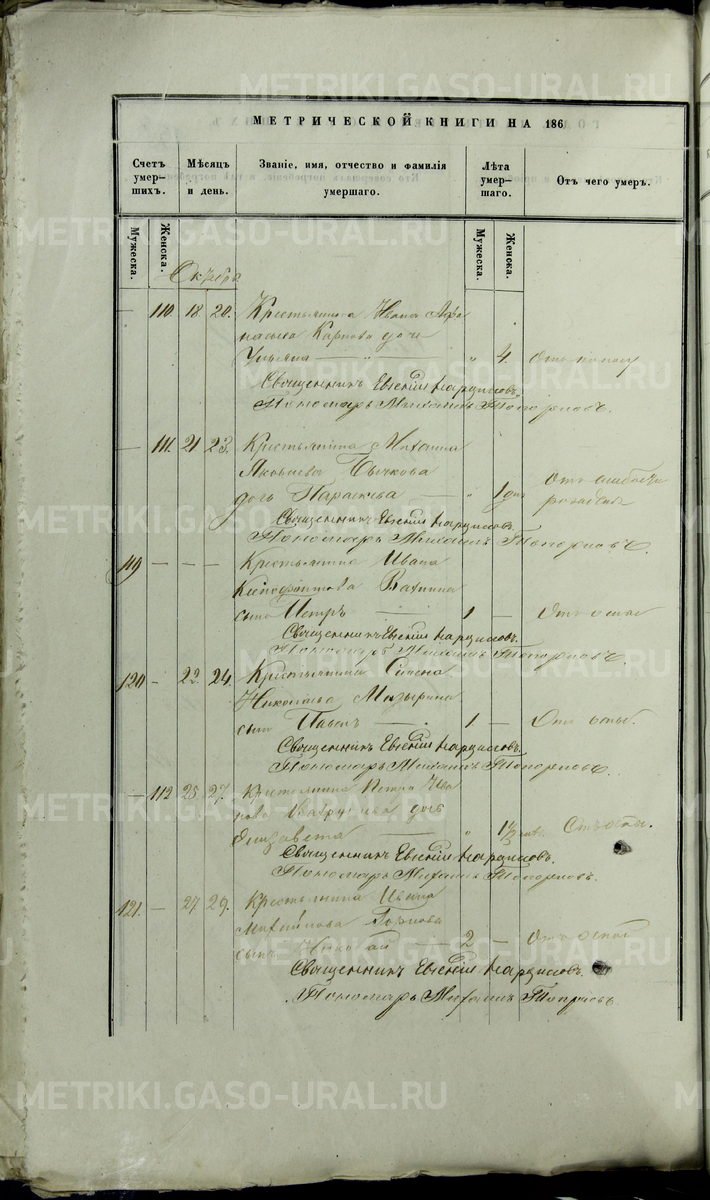 METRIKI.GASO-URAL.RU
МЕТРИЧЕСКОЙ КНИГИ НА 186
Счетъ умер-шихъ.
Мѣсяцъ и день.
Званіе, имя, отчество и фамилія умершаго.
Лѣта умер-шаго.
Отъ чего умеръ.
Мужеска.
Женска.
Мужеска.
Женска.
Октябрь
— 110 18 20. Крестьянина Ивана Афа
насьева Карпова дочь
Ульяна — " — " 4. отъ поносу
Священникъ Евгеній Нарциссовъ.
Пономарь Михаилъ Топорковъ.
— 111. 21 23. Крестьянина Михаила
Яковлева Бычкова
дочь Параскева — " 1 дня Отъ слабости
рожденія
Священникъ Евгеній Нарциссовъ.
Пономарь Михаилъ Топорковъ.
119 — — — Крестьянина Ивана
Ксенофонтова Вахнина
сынъ Петръ — 1 — Отъ оспы
Священникъ Евгеній Нарциссовъ.
Пономарь Михаилъ Топорковъ.
120 — 22. 24. Крестьянина Семена
Николаева Мазырина
сынъ Павелъ — 1 — Отъ оспы.
Священникъ Евгеній Нарциссовъ.
Пономарь Михаилъ Топорковъ.
— 112 25. 27. Крестьянина Петра Ива
нова дочь
Елизавета — " 1½ Отъ оспы.
Священникъ Евгеній Нарциссовъ.
Пономарь Михаилъ Топорковъ.
121. — 27. 29. Крестьянина Ивана
Михайлова
сынъ Николай — 2 — Отъ оспы
Священникъ Евгеній Нарциссовъ.
Пономарь Михаилъ Топорковъ.